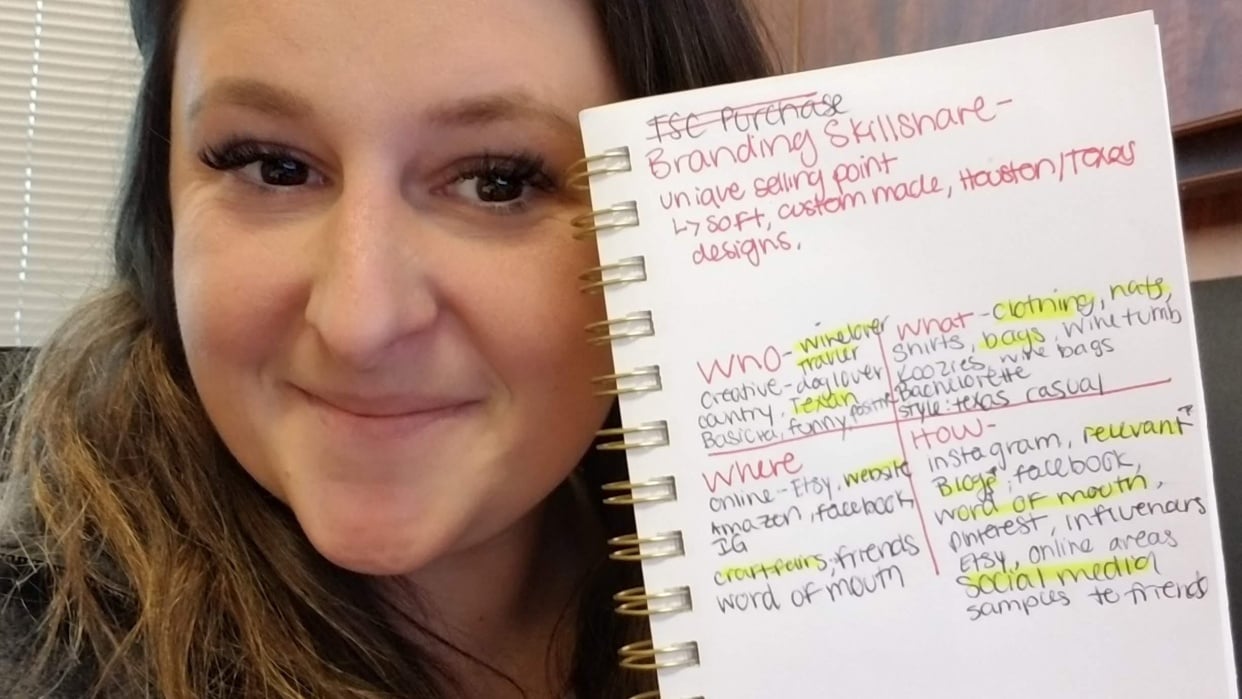 Purchase
Branding Skillshare -
unique selling point
↳ soft, custom made, Houston/Texas
designs.
WHO - winelover
creative - doglover
country, Texan
funny, positive
What - clothing, hats,
shirts, bags, wine tumb
Koozies, wine bags
Bachelorette
style: texas casual
Where
online - Etsy, website
Amazon, facebook,
IG
craft fairs, friends
word of mouth
HOW -
instagram, relevant
Blogs, facebook,
word of mouth,
pinterest,
Etsy, online areas
social media
samples to friends